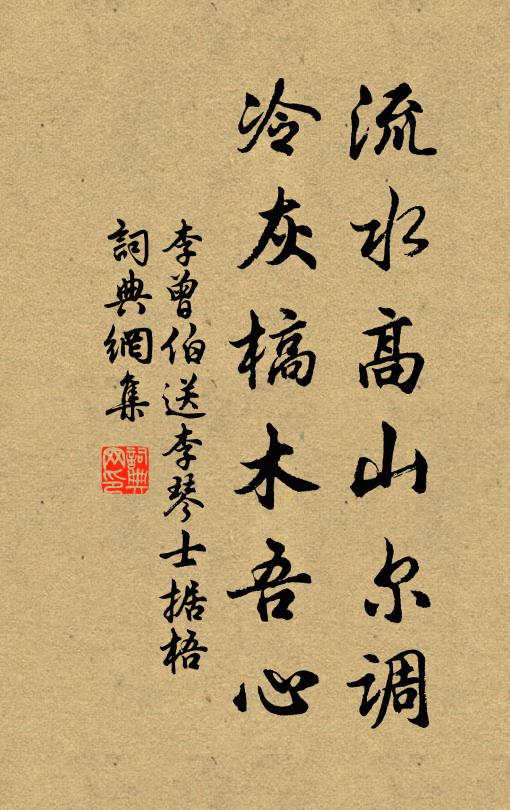 流水高山尔调
冷灰槁木吾心
李曾伯送李琴士据梧
詞典網集
詞典网印